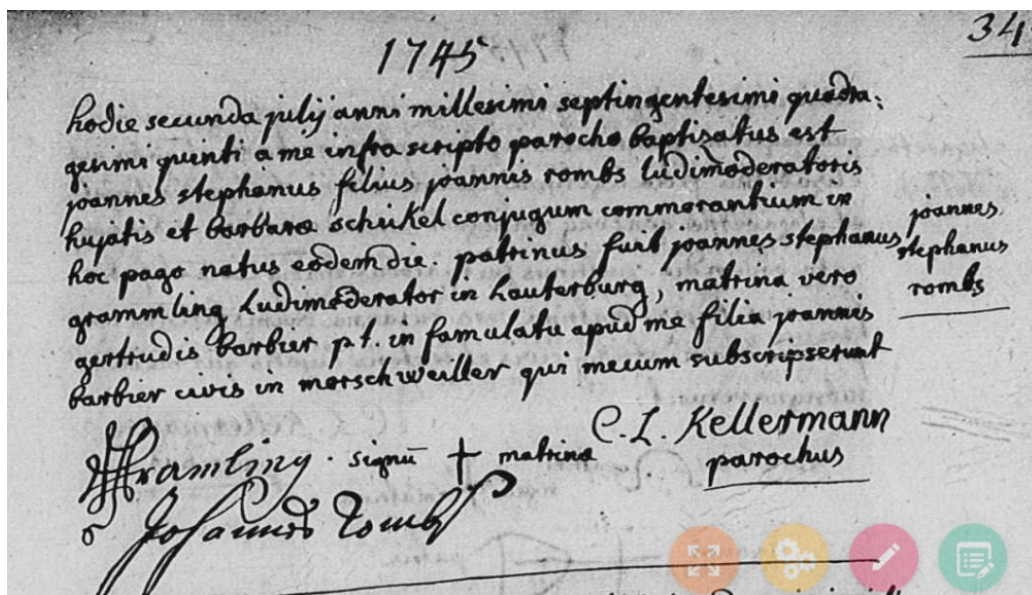 1745
34
hodie secunda julij anni millesimi septingentesimi quadra:
gesimi quinti a me infra scripto parocho baptizatus est
joannes stephanus filius joannis rombs ludimoderatoris
hujatis et barbara schikel conjugum commorantium in
hoc pago natus eodem die. patrinus fuit joannes stephanus
grammling ludimoderator in Lauterburg, matrina vero
gertrudis barbier p.t. in famulatu apud me filia joannis
barbier civis in morschweiller qui mecum subscripserunt
joannes
stephanus
rombs
C. L. Kellermann
parochus
Gramling. signū + matrinæ
Johannes Rombs